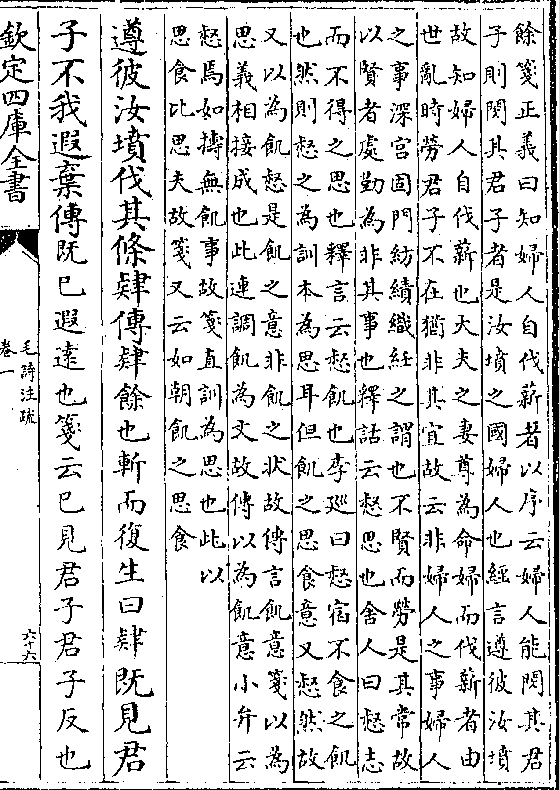 餘箋正義曰知婦人自伐薪者以序云婦人能閔其君
子則閔其君子者是汝墳之國婦人也經言遵彼汝墳
故知婦人自伐薪也大夫之妻尊為命婦而伐薪者由
世亂時勞君子不在猶非其宜故云非婦人之事婦人
之事深宮固門紡績織紝之謂也不賢而勞是其常故
以賢者處勤為非其事也釋詁云惄思也舍人曰惄志
而不得之思也釋言云惄飢也李廵曰惄宿不食之飢
也然則惄之為訓本為思耳但飢之思食意又惄然故
又以為飢惄是飢之意非飢之狀故傳言飢意箋以為
思義相接成也此連調飢為文故傳以為飢意小弁云
惄焉如擣無飢事故箋直訓為思也此以
思食比思夫故箋又云如朝飢之思食
遵彼汝墳伐其條肄傳肄餘也斬而復生曰肄既見君
子不我遐棄傳既巳遐遠也箋云巳見君子君子反也
欽定四庫全書
毛詩注疏
卷一
六十六